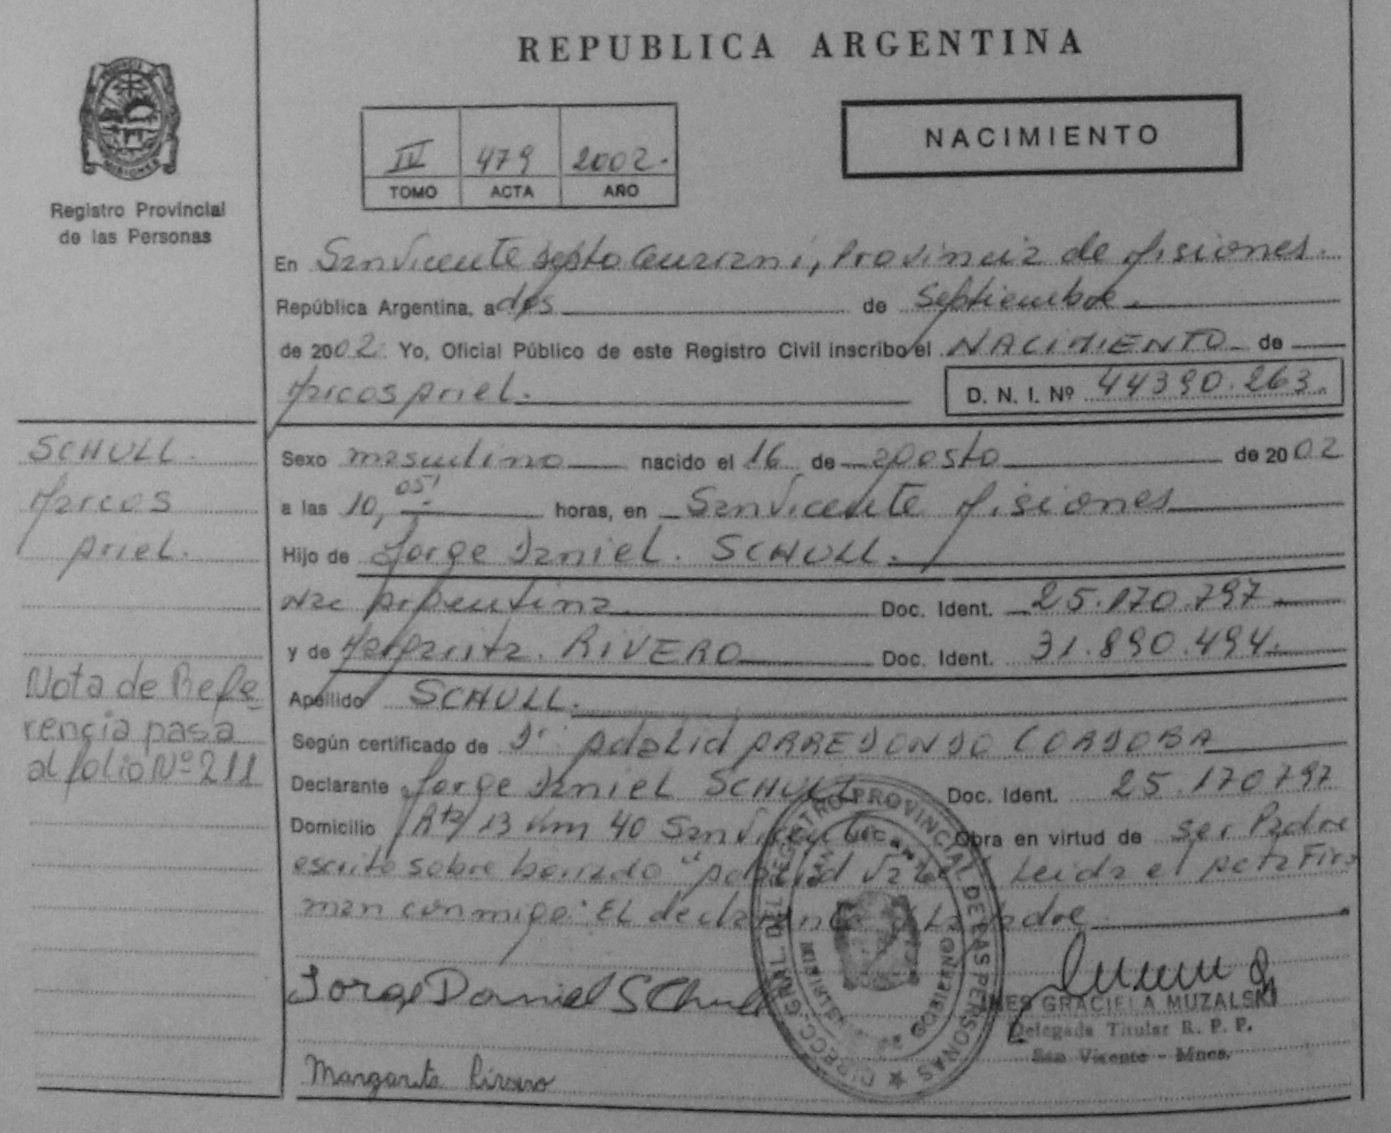 REPUBLICA ARGENTINA
PROVINCIA DE
MISIONES
Registro Provincial
de las Personas
IV 479 2002.
TOMO ACTA AÑO
NACIMIENTO
En San Vicente Depto Guarani, Provincia de Misiones.
República Argentina, a dos de Septiembre
de 2002. Yo, Oficial Público de este Registro Civil inscribo el NACIMIENTO de
Marcos Ariel. D. N. I. Nº 44390.263.
SCHULL.
Marcos
Ariel.
Sexo masculino nacido el 16 de agosto de 2002
a las 10,05' horas, en San Vicente Misiones
Hijo de Jorge Daniel. SCHULL.
Nac Argentina Doc. Ident. 25.170.797
y de Margarita. RIVERO Doc. Ident. 31.890.494
Apellido SCHULL.
Según certificado de Dr Adalid ARREDONDO CORDOBA
Declarante Jorge Daniel SCHULL Doc. Ident. 25.170797
Domicilio Rta/13 Km 40 San Vicente Obra en virtud de ser Padre
escrito sobre borrado "Adalid Leida el Acta Fir
man conmigo: El declarante y La Madre
Nota de Refe
rencia pasa
al folio Nº 211
Jorge Daniel SChull
Margarita Rivero
DIRECC. GRAL. DEL REGISTRO PROVINCIAL DE LAS PERSONAS
MINISTERIO DE GOBIERNO
INES GRACIELA MUZALSKI
Delegada Titular R. P. P.
San Vicente - Mnes.